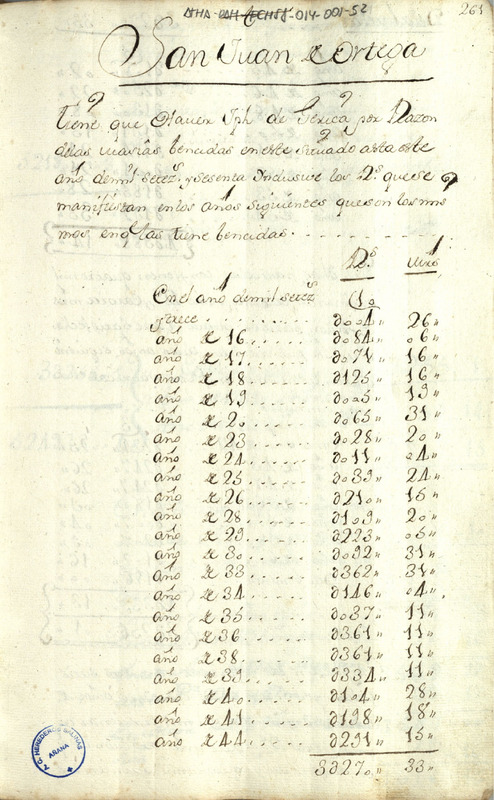 ATHA-DAH-FCHSJ-014-001-52
263
San Juan de Ortega
Tiene que Haver Jph de Gexica por Razon
delas ucarias bencidas en este Situado asta este
año demil setezs. y sesenta Inclusive los Rs. quese
manifiestan enlos años siguientes queson los mis
mos enq las tiene bencidas
Rs mrs
En el año demil setezs
y trece 0004 26
año de 16 0084 06
año de 17 0071 16
año de 18 0125 16
año de 19 0005 13
año de 20 0065 31
año de 23 0028 20
año de 24 0011 04
año de 25 0039 24
año de 26 0210 15
año de 28 0109 20
año de 29 0223 05
año de 30 0092 31
año de 33 0362 31
año de 34 0146 04
año de 35 0037 11
año de 36 0361 11
año de 38 0361 11
año de 39 0334 11
año de 40 0104 28
año de 41 0198 18
año de 44 0291 15
3327 33
A.G. HEREDEROS SALINAS
ARANA